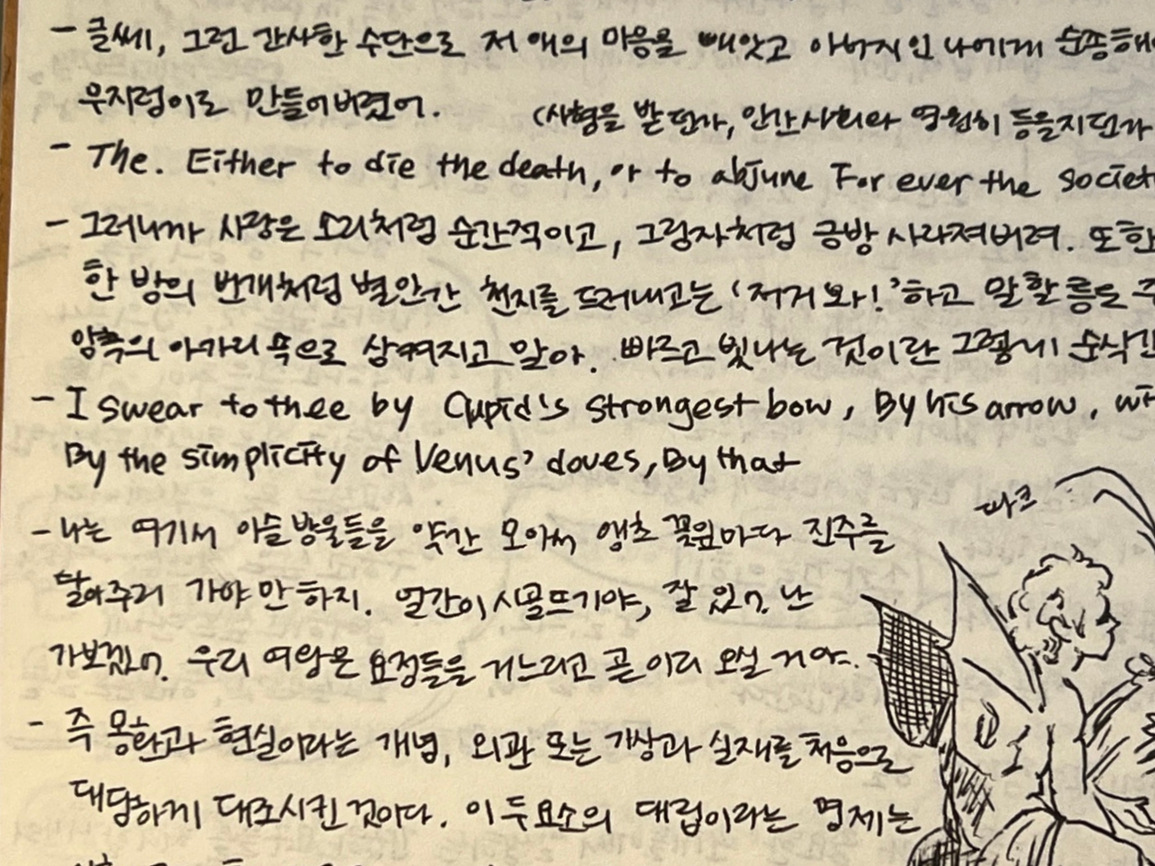 - 글쎄, 그런 간사한 수단으로 저 애의 마음을 빼앗고 아버지인 나에게 순종해야
우지렁이로 만들어버렸어.
(사형을 받던가, 인간사회와 영원히 등을지던가
- The. Either to die the death, or to abjune For ever the societ
- 그러니까 사랑은 소리처럼 순간적이고, 그림자처럼 금방 사라져버려. 또한
한 밤의 번개처럼 별안간 천지를 드러내고는 '저거 봐!' 하고 말할 틈도 주
암흑의 아가리 속으로 삼켜지고 말아. 빠르고 빛나는 것이란 그렇게 순식간
- I swear to thee by Cupid's strongest bow, By his arrow, wi
By the simplicity of Venus' doves, By that
- 나는 여기서 이슬방울들을 약간 모아서 앵초 꽃잎마다 진주를
파크
달아주러 가야만 하지. 얼간이 시골뜨기야, 잘 있어. 난
가보겠어. 우리 여왕은 요정들을 거느리고 곧 이리 오실 거야.
- 즉 몽환과 현실이라는 개념, 외관 또는 가상과 실재를 처음으로
대담하게 대조시킨 것이다. 이 두요소의 대립이라는 명제는